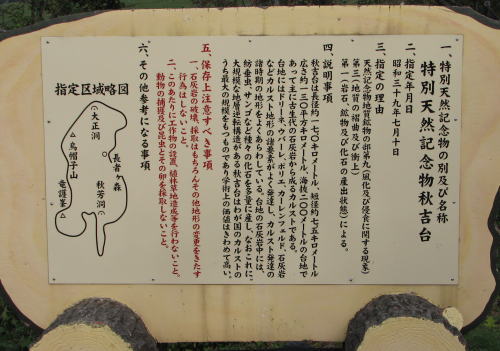 一、特別天然記念物の別及び名称
特別天然記念物秋吉台
二、指定年月日
昭和三十九年七月十日
三、指定の理由
天然記念物地質鉱物の部第九(風化及び侵食に関する現象)
第三(地質の褶曲及び衝上)
第一(岩石、鉱物及び化石の産出状態)による。
四、説明事項
秋吉台は長径約一七〇キロメートル、短径約七五キロメートル
広さ約一三〇平方キロメートル、海抜二〇〇メートルの台地で
あって主に古生代の石灰岩から成るカルストである。
台地にはドリーネ、ウバーレ、ポリエ、カーレンフェルド、石灰岩
などカルスト地形の諸要素がよく発達し、カルスト発達の
諸時期の地形をよくあらわしている。台地の石灰岩中には、
紡垂虫、サンゴなど種々の化石を多量に産し、なおこれに、
大規模な地層逆転構造がある秋吉台はわが国のカルストの
うち最大の規模をもつものであり学術上の価値はきわめて高い。
五、保存上注意すべき事項
一、石灰岩の破壊、採取はもちろんその他地形の変更をきたす
行為はしないこと。
二、このあたりに工作物の設置、植林草地造成等を行わないこと。
動物の捕獲及び昆虫とその卵を採取しないこと。
六、その他参考になる事項
指定区域略図
大正洞
長者ヶ森
烏帽子山
秋芳洞
竜護峯